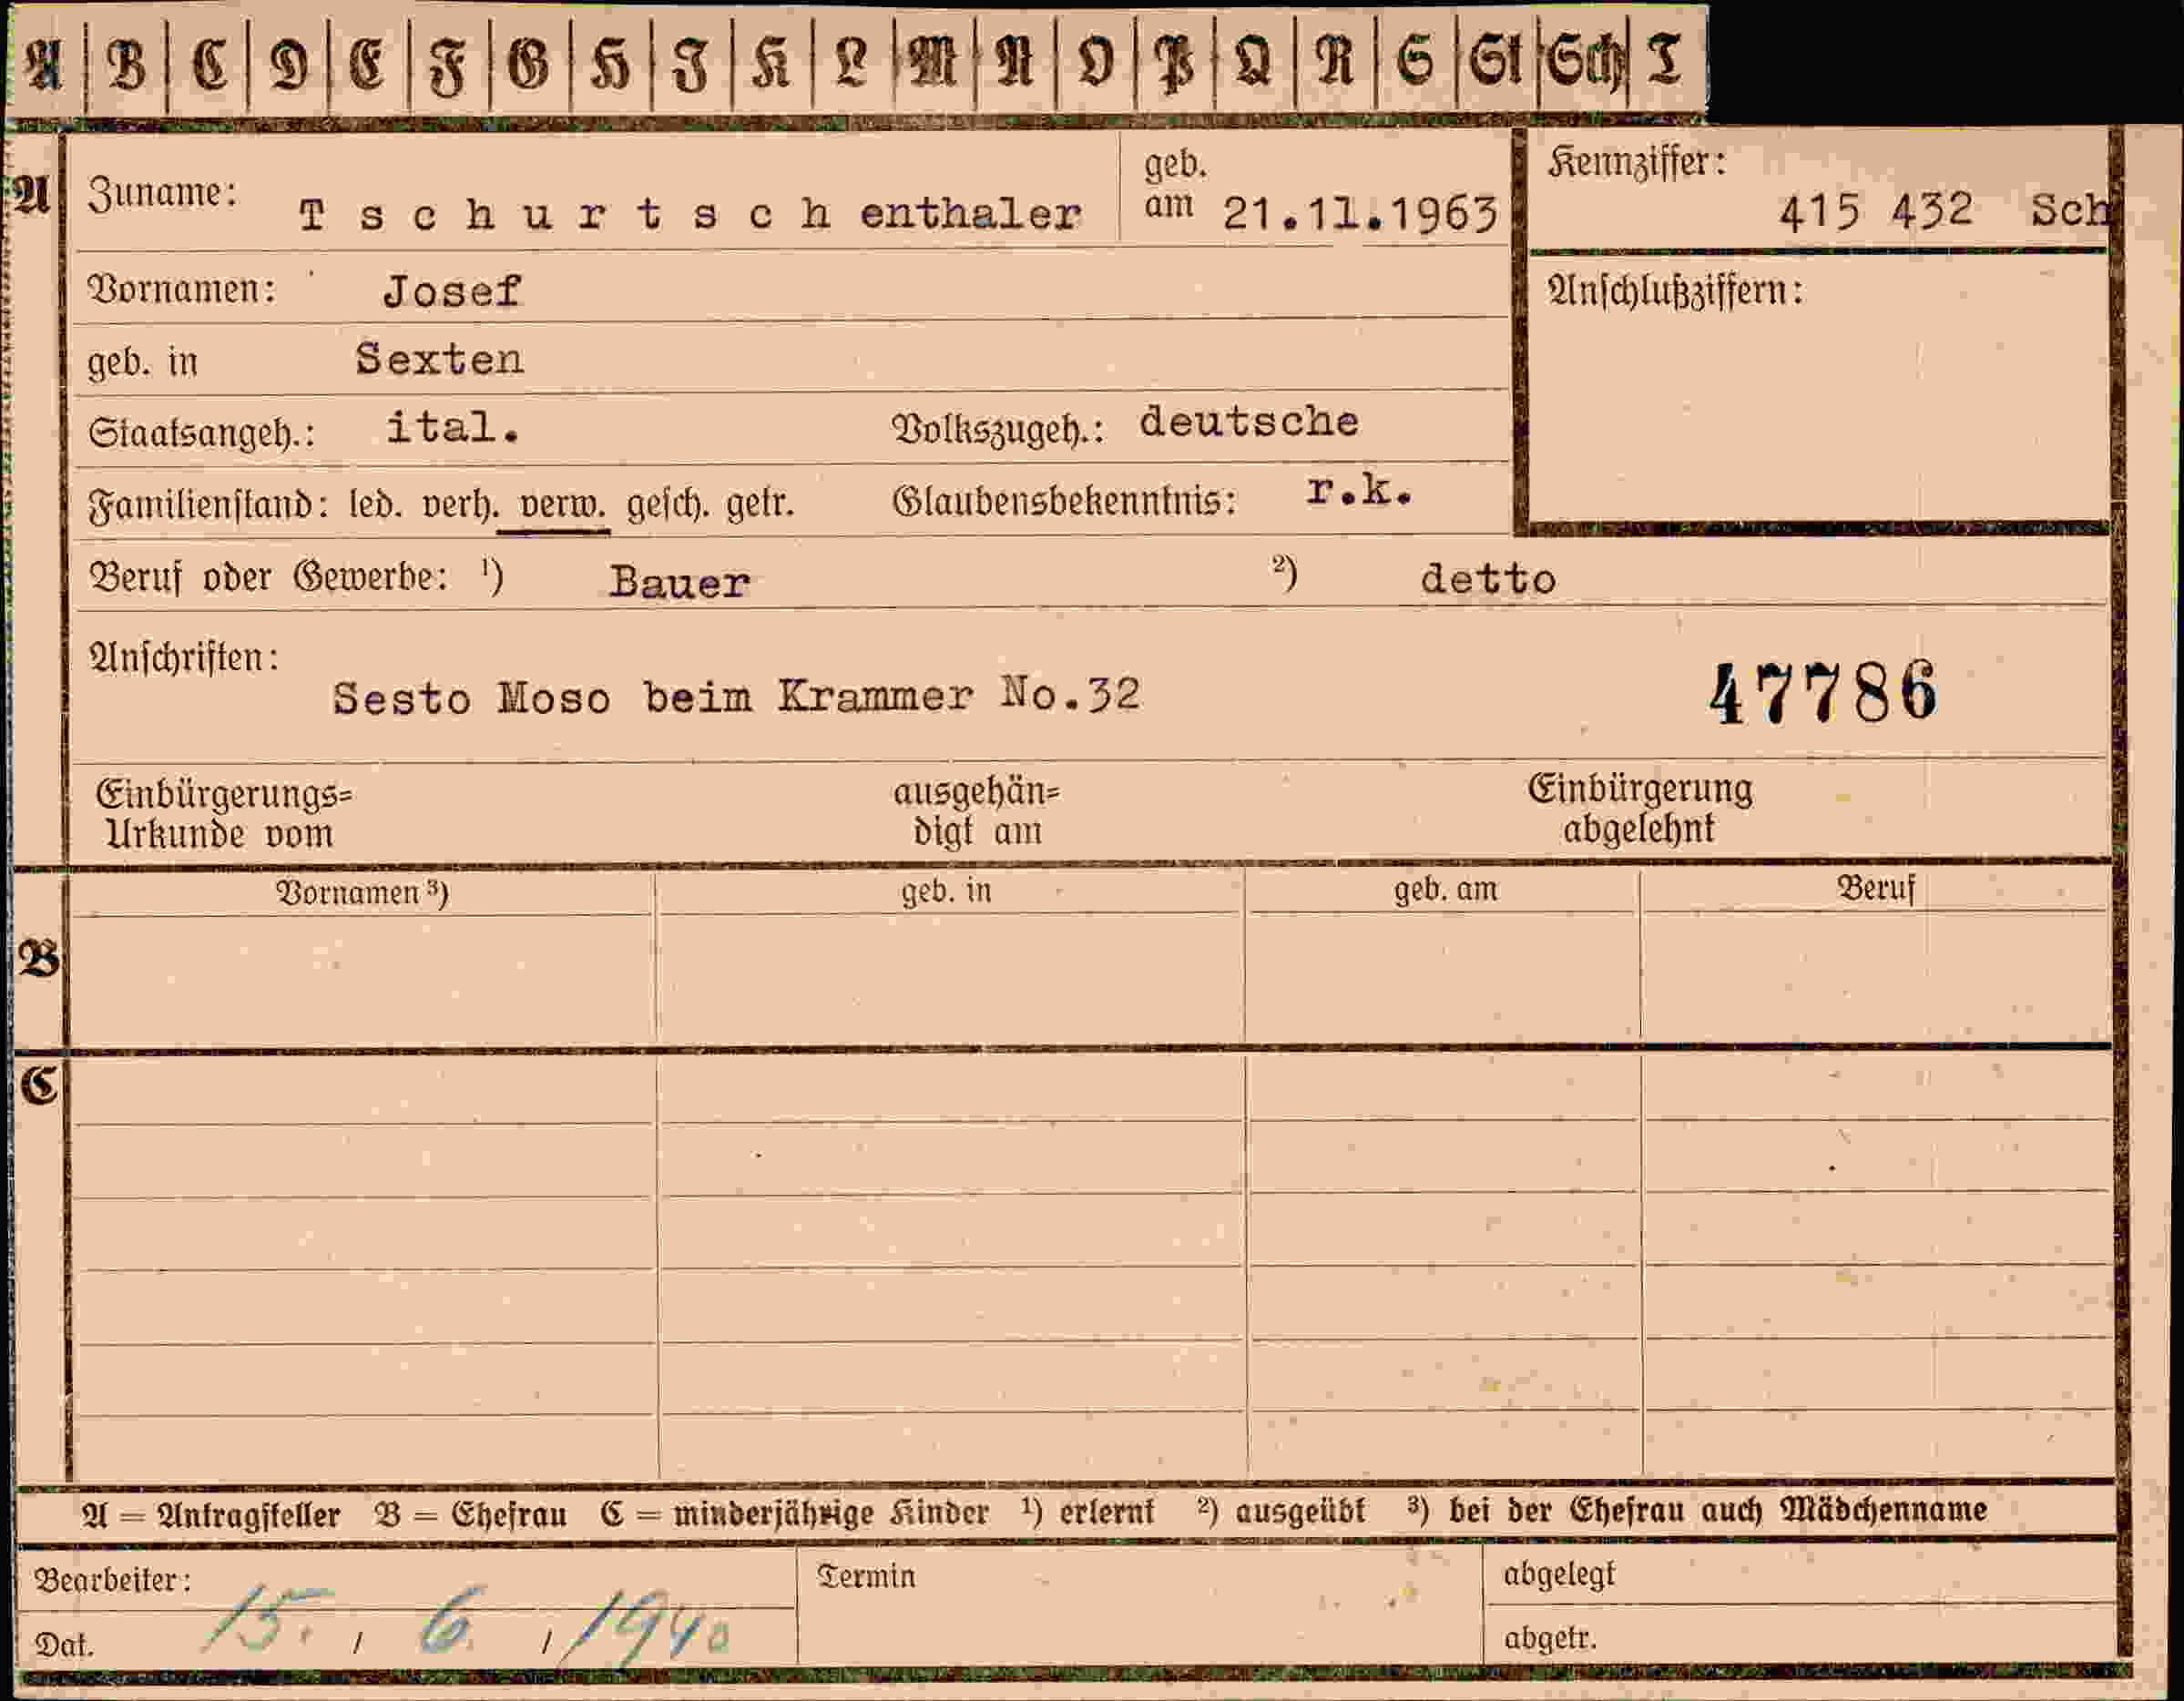 A B C D E F G H I K L M N O P Q R S St Sch T
A Zuname: Tschurtschenthaler geb. am 21.11.1963 Kennziffer: 415 432 Sch
Vornamen: Josef Anschlußziffern:
geb. in Sexten
Staatsangeh.: ital. Volkszugeh.: deutsche
Familienstand: led. verh. verw. gesch. getr. Glaubensbekenntnis: r.k.
Beruf oder Gewerbe: ¹) Bauer ²) detto
Anschriften:
Sesto Moso beim Krammer No.32 47786
Einbürgerungs= ausgehän= Einbürgerung
Urkunde vom digt am abgelehnt
Vornamen ³) geb. in geb. am Beruf
B
C
A = Antragsteller B = Ehefrau C = minderjährige Kinder ¹) erlernt ²) ausgeübt ³) bei der Ehefrau auch Mädchenname
Bearbeiter: Termin abgelegt
Dat. 15. / 6. / 1940 abgetr.